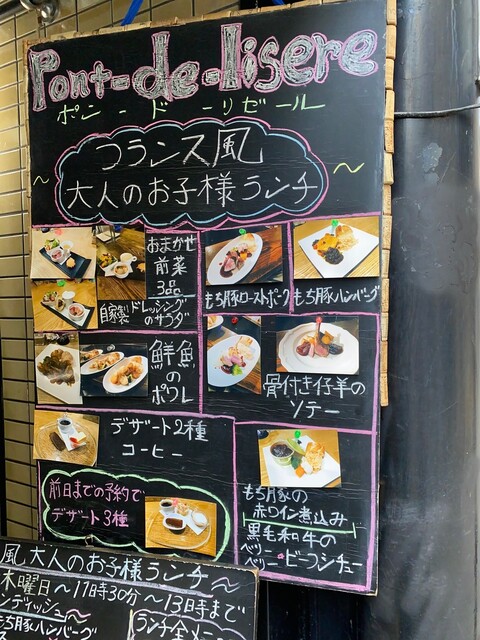 Pont-de-lisere
ポン－ド－リゼール
フランス風
大人のお子様ランチ
おまかせ
前菜
3品
自家製ドレッシング
のサラダ
もち豚ローストポーク
もち豚ハンバーグ
鮮魚
の
ポワレ
骨付き仔羊の
ソテー
デザート2種
コーヒー
前日までの予約で
デザート3種
もち豚の
赤ワイン煮込み
黒毛和牛の
ベリーベリービーフシチュー
風 大人のお子様ランチ
木曜日～11時30分～13時まで
ンディッシュ
もち豚ハンバーグ
ランチ全メニ